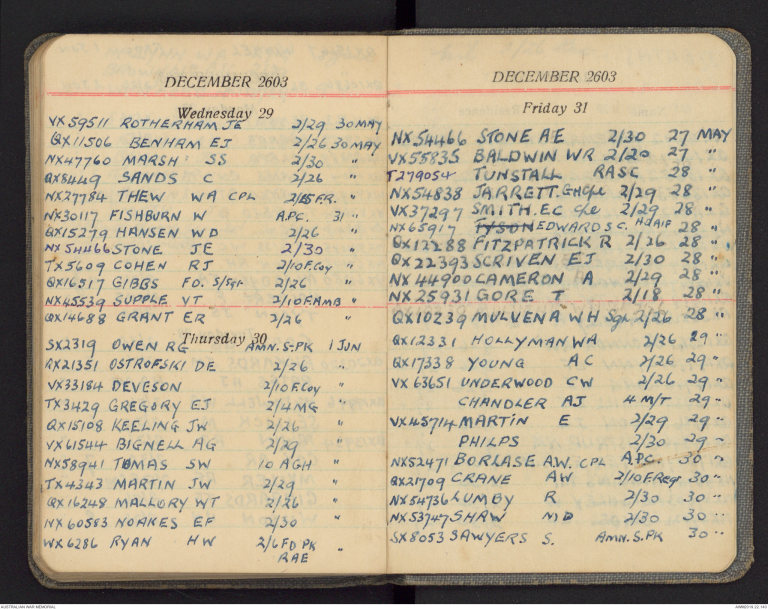 DECEMBER 2603
Wednesday 29
VX59511 ROTHERHAM JE 2/29 30 MAY
QX11506 BENHAM EJ 2/26 30 MAY
NX47760 MARSH SS 2/30 "
QX8449 SANDS C 2/26 "
NX27784 THEW WA CPL F.R. "
NX30117 FISHBURN W A.P.C. 31 "
QX15279 HANSEN WD 2/26 "
NX54466 STONE JE 2/30 "
TX5609 COHEN RJ 2/10 F.Coy "
QX16517 GIBBS FO. S/Sgt 2/26 "
NX45539 SUPPLE VT 2/10 F.AMB "
QX14688 GRANT ER 2/26 "
Thursday 30
SX2319 OWEN RG AMN.S.PK 1 JUN
QX21351 OSTROFSKI DE 2/26 "
VX33184 DEVESON 2/10 F.Coy "
TX3429 GREGORY EJ 2/4 MG "
QX15108 KEELING JW 2/26 "
VX61544 BIGNELL AG 2/29 "
NX58941 TOMAS SW 10 AGH "
TX4343 MARTIN JW 2/29 "
QX16248 MALLORY WT 2/26 "
NX60583 NOAKES EF 2/30 "
WX6286 RYAN HW 2/6 FD PK "
RAE
DECEMBER 2603
Friday 31
NX54466 STONE AE 2/30 27 MAY
VX55835 BALDWIN WR 2/20 27 "
T279054 TUNSTALL RASC 28 "
NX54838 JARRETT. GH Cpl 2/29 28 "
VX37297 SMITH. EC Cpl 2/29 28 "
NX65917 TYSON EDWARDS C. HQ AIF 28 "
QX12288 FITZPATRICK R 2/26 28 "
QX22393 SCRIVEN EJ 2/30 28 "
NX44900 CAMERON A 2/29 28 "
NX25931 GORE T 2/18 28 "
QX10239 MULVENA WH Sgt 2/26 28 "
QX12331 HOLLYMAN WA 2/26 29 "
QX17338 YOUNG AC 2/26 29 "
VX63651 UNDERWOOD CW 2/26 29 "
CHANDLER AJ 4 M/T 29 "
VX45714 MARTIN E 2/29 29 "
PHILPS 2/30 29 "
NX52471 BORLASE A.W. CPL A.P.C. 30 "
QX21709 CRANE AW 2/10 F.Reg 30 "
NX54736 LUMBY R 2/30 30 "
NX53747 SHAW ND 2/30 30 "
SX8053 SAWYERS S. AMN.S.PK 30 "
AUSTRALIAN WAR MEMORIAL